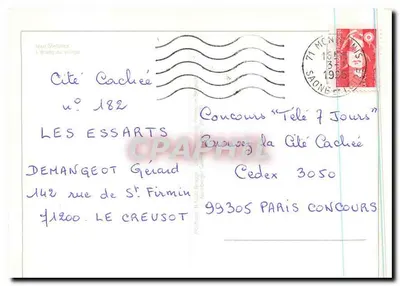 Cité Cachée
n° 182
LES ESSARTS
DEMANGEOT Gérard
142 rue de St Firmin
71200. LE CREUSOT
Concours "Télé 7 Jours"
la Cité Cachée
Cedex 3050
99305 PARIS CONCOURS